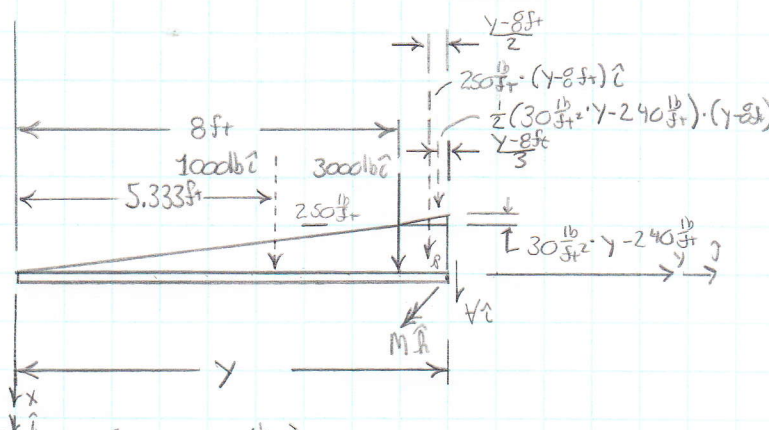 y-8ft
2
250 lb/ft·(y-8ft) î
1/2(30 lb/ft²·y-240 lb/ft)·(y-8ft)
y-8ft
3
8ft
1000lb î
3000lb î
5.333ft
250 lb/ft
30 lb/ft²·y-240 lb/ft
y
ĵ
V î
M k̂
y
x
î